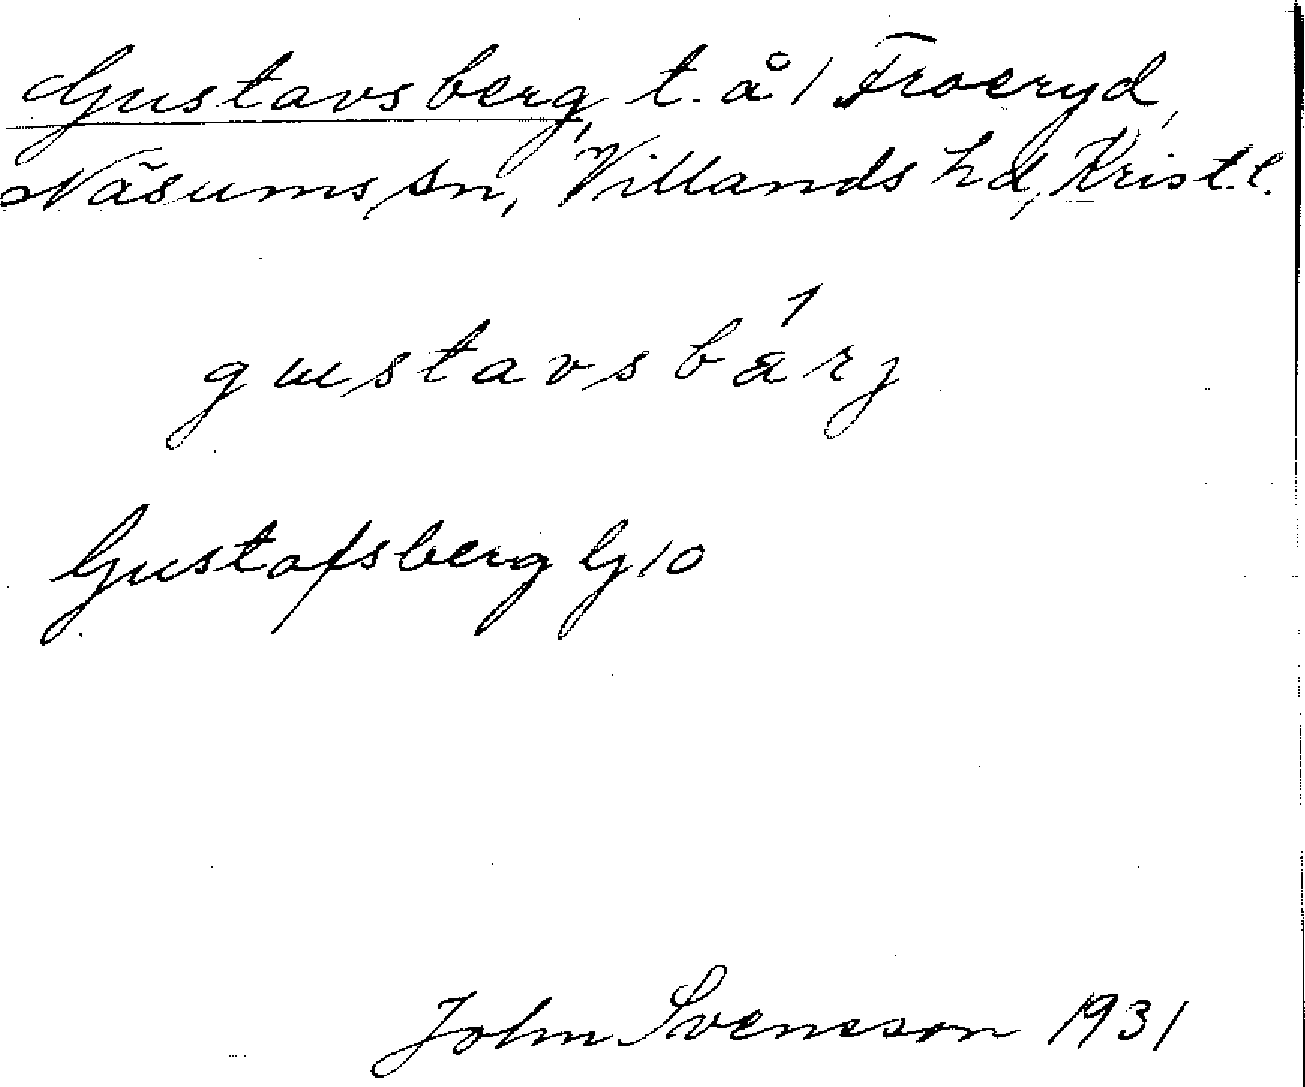 Gustavsberg, t. å 1 Froeryd,
Näsums sn, Villands hd, Krist.l.
gustavsbárj
Gustafsberg G 10
John Svensson 1931